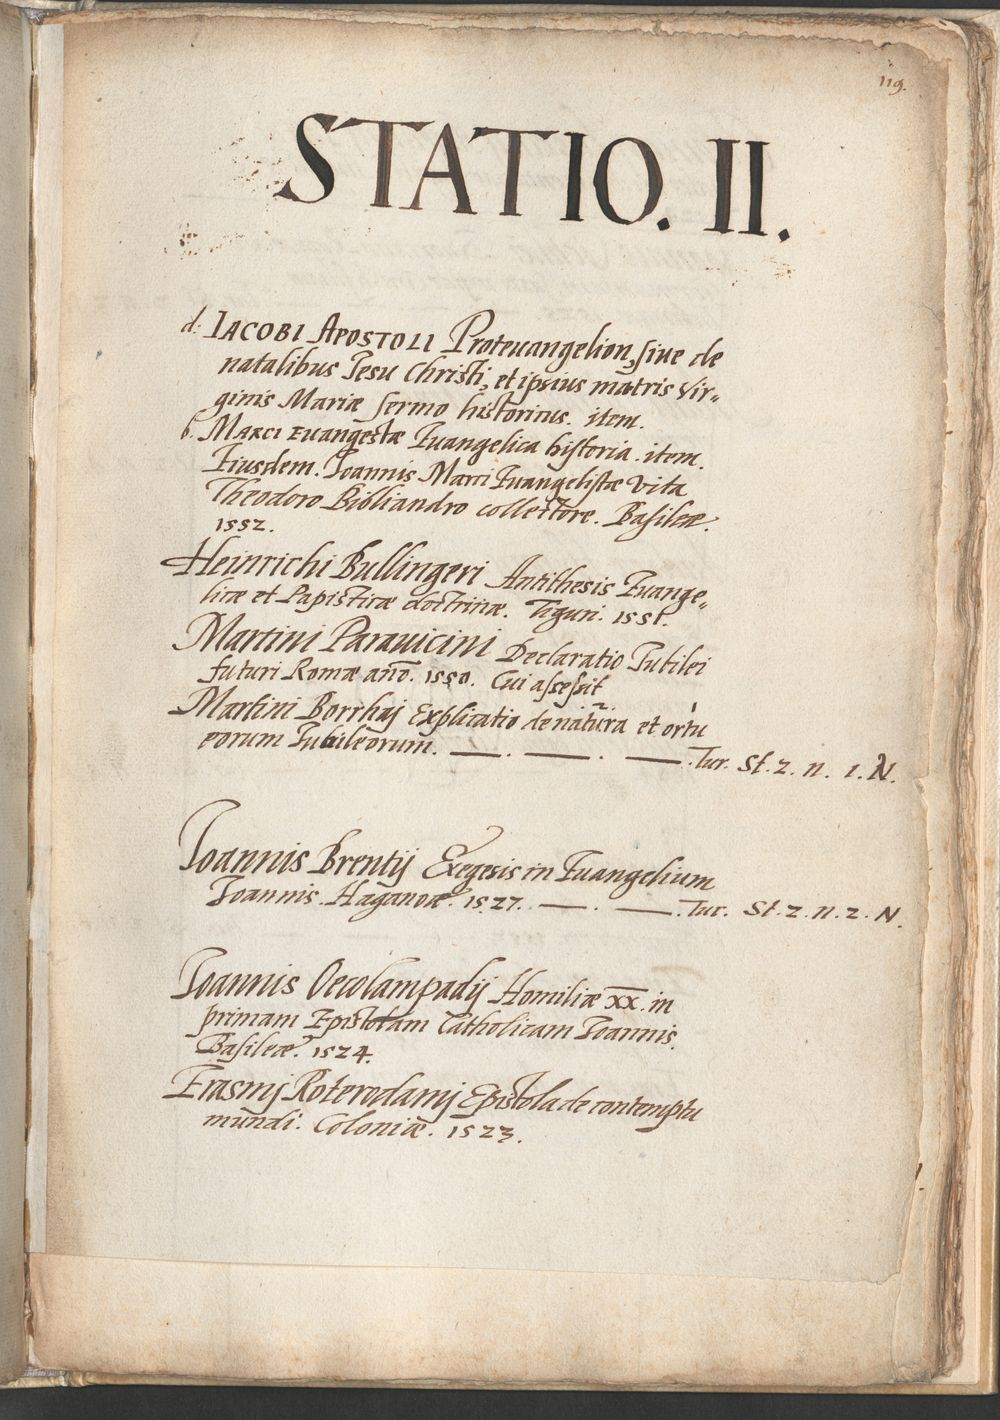 119.
STATIO. II.
d. IACOBI APOSTOLI Proteuangelion, siue de
natalibus Iesu Christi, et ipsius matris Vir-
ginis Mariæ sermo historicus. item.
b. MARCI Euangestæ Euangelica historia. item.
Eiusdem. Ioannis Marci Euangelistæ vita
Theodoro Bibliandro collectore. Basileæ.
1552.
Heinrichi Bullingeri Antithesis Euange-
licæ et Papisticæ doctrinæ. Tiguri. 1551.
Martini Parauicini Declaratio Iubilei
futuri Romæ año. 1550. Cui assessit
Martini Borrhaj Explicatio de natura et ortu
eorum Iubileorum. — . — . — . Tur. St. 2. n. 1. N.
Ioannis Brentij Exegesis in Euangelium
Ioannis. Haganoæ. 1527. — . — . Tur. St. 2. n. 2. N.
Ioannis Oecolampadij Homiliæ XX. in
primam Epistolam Catholicam Ioannis.
Basileæ. 1524.
Erasmj Roterodamj Epistola de contemptu
mundi. Coloniæ. 1523.